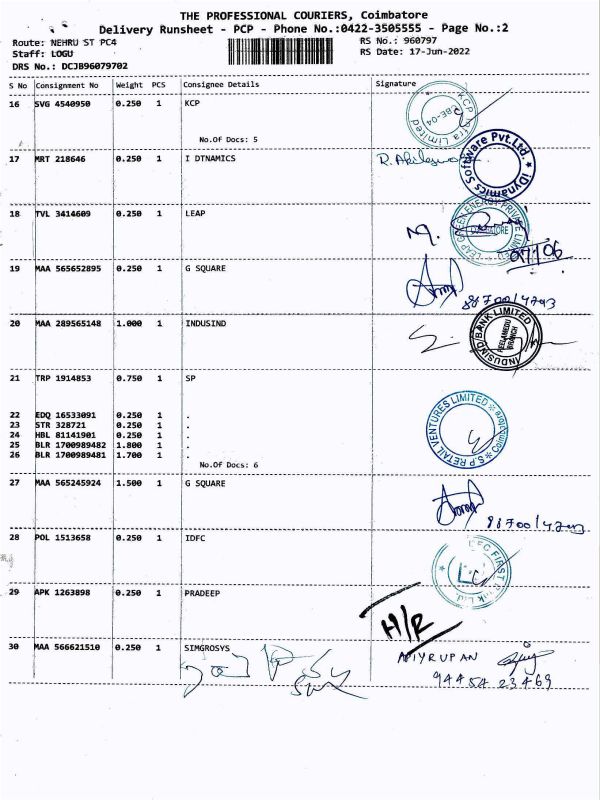 THE PROFESSIONAL COURIERS, Coimbatore
Delivery Runsheet - PCP - Phone No.:0422-3505555 - Page No.:2
Route: NEHRU ST PC4 RS No.: 960797
Staff: LOGU RS Date: 17-Jun-2022
DRS No.: DCJB96079702
S No Consignment No Weight PCS Consignee Details Signature
16 SVG 4540950 0.250 1 KCP
No.Of Docs: 5
17 MRT 218646 0.250 1 I DTNAMICS
iDynamics Software Pvt.Ltd.
18 TVL 3414609 0.250 1 LEAP
LEAP GREEN ENERGY PRIVATE LIMITED
19 MAA 565652895 0.250 1 G SQUARE
20 MAA 289565148 1.000 1 INDUSIND
INDUSIND BANK LIMITED
PEELAMEDU BRANCH
21 TRP 1914853 0.750 1 SP
S.P RETAIL VENTURES LIMITED Coimbatore
22 EDQ 16533091 0.250 1 .
23 STR 328721 0.250 1 .
24 HBL 81141901 0.250 1 .
25 BLR 1700989482 1.800 1 .
26 BLR 1700989481 1.700 1 .
No.Of Docs: 6
27 MAA 565245924 1.500 1 G SQUARE
28 POL 1513658 0.250 1 IDFC
29 APK 1263898 0.250 1 PRADEEP
H/R
30 MAA 566621510 0.250 1 SIMGROSYS
94454 23469